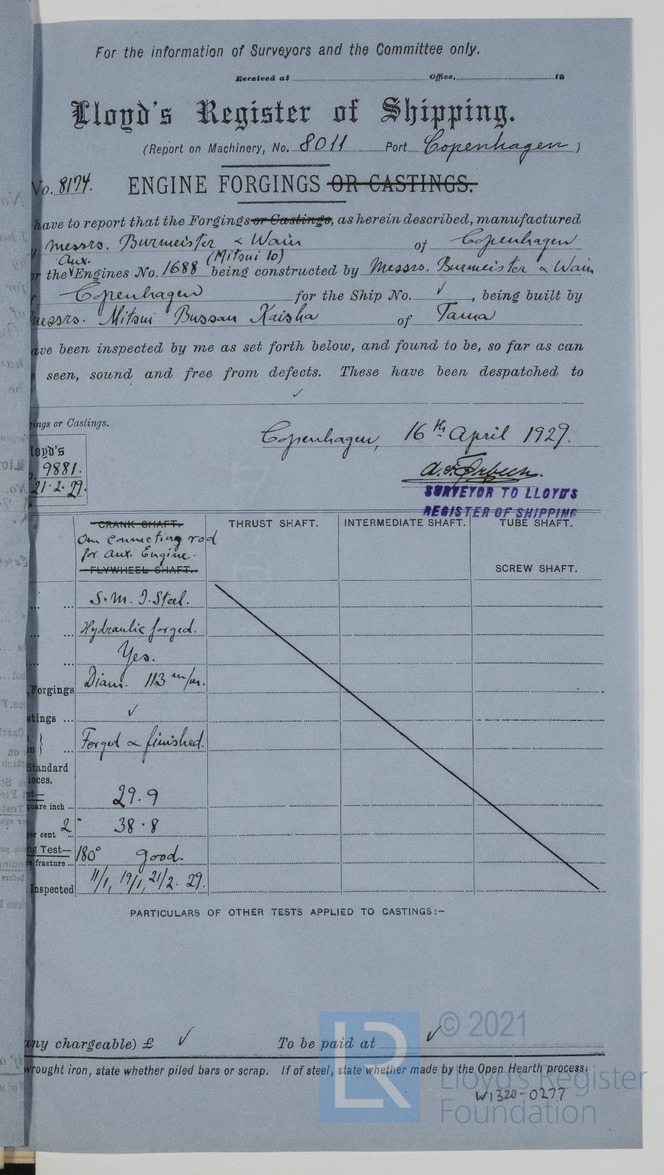 For the information of Surveyors and the Committee only.
Received at Office, 19
Lloyd's Register of Shipping.
(Report on Machinery, No. 8011 Port Copenhagen)
No. 8174. ENGINE FORGINGS OR CASTINGS.
have to report that the Forgings or Castings, as herein described, manufactured
Messrs. Burmeister & Wain of Copenhagen
Aux. (Mitsui 10)
the Engines No. 1688 being constructed by Messrs. Burmeister & Wain
Copenhagen for the Ship No. ✓, being built by
Messrs. Mitsui Bussan Kaisha of Tama
ave been inspected by me as set forth below, and found to be, so far as can
seen, sound and free from defects. These have been despatched to
✓
ings or Castings.
Copenhagen, 16th April 1929.
loyd's
9881.
21.2.29.
SURVEYOR TO LLOYD'S
REGISTER OF SHIPPING
CRANK SHAFT. THRUST SHAFT. INTERMEDIATE SHAFT. TUBE SHAFT.
One connecting rod
for Aux. Engine.
FLYWHEEL SHAFT. SCREW SHAFT.
S.M. I. Steel.
Hydraulic forged.
Yes.
Forgings Diam. 113 m/m.
stings ... ✓
Forged & finished.
Standard
ieces.
quare inch ... 29.9
per cent 2" 38.8
ng Test—
fracture ... 180° good.
Inspected 11/1, 19/1, 21/2. 29.
PARTICULARS OF OTHER TESTS APPLIED TO CASTINGS:—
any chargeable) £ ✓ To be paid at ✓
wrought iron, state whether piled bars or scrap. If of steel, state whether made by the Open Hearth process.
LR
© 2021
Lloyd's Register
Foundation
W1320-0277